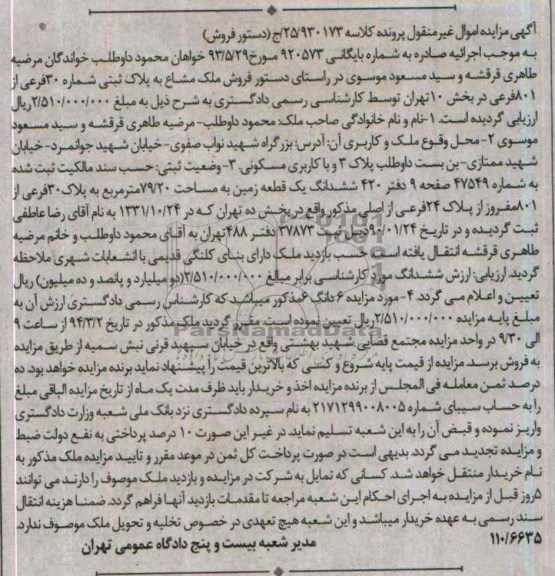 آگهی مزایده اموال غیرمنقول پرونده کلاسه ۲۵/۹۳۰۱۷۳/ج (دستور فروش)
به موجب اجرائیه صادره به شماره بایگانی ۹۲۰۵۷۳ مورخ ۹۳/۵/۲۹ خواهان محمود داوطلب خواندگان مرضیه
طاهری قرقشه و سید مسعود موسوی در راستای دستور فروش ملک مشاع به پلاک ثبتی شماره ۳۰ فرعی از
۸۰۱ فرعی در بخش ۱۰ تهران توسط کارشناسی رسمی دادگستری به شرح ذیل به مبلغ ۲/۵۱۰/۰۰۰/۰۰۰ ریال
ارزیابی گردیده است. ۱- نام و نام خانوادگی صاحب ملک: محمود داوطلب- مرضیه طاهری قرقشه و سید مسعود
موسوی ۲- محل وقوع ملک و کاربری آن: آدرس: بزرگراه شهید نواب صفوی- خیابان شهید جوانمرد- خیابان
شهید ممتازی- بن بست داوطلب پلاک ۳ و با کاربری مسکونی. ۳- وضعیت ثبتی: حسب سند مالکیت ثبت شده
به شماره ۴۷۵۴۹ صفحه ۹ دفتر ۴۲۰ ششدانگ یک قطعه زمین به مساحت ۷۹/۲۰ مترمربع به پلاک ۳۰ فرعی از
۸۰۱ مفروز از پلاک ۲۴ فرعی از اصلی مذکور واقع در بخش ده تهران که در ۱۳۳۱/۱۰/۲۴ به نام آقای رضا عاطفی
ثبت گردیده و در تاریخ ۹۰/۰۱/۲۴ ذیل ثبت ۳۷۸۷۳ دفتر ۴۸۸ تهران به آقای محمود داوطلب و خانم مرضیه
طاهری قرقشه انتقال یافته است حسب بازدید ملک دارای بنای کلنگی قدیمی با انشعابات شهری ملاحظه
گردید. ارزیابی: ارزش ششدانگ مورد کارشناسی برابر مبالغ ۲/۵۱۰/۰۰۰/۰۰۰ (دو میلیارد و پانصد و ده میلیون) ریال
تعیین و اعلام می گردد. ۴- مورد مزایده ۶ دانگ ۶ مذکور میباشد که کارشناس رسمی دادگستری ارزش آن به
مبلغ پایه مزایده ۲/۵۱۰/۰۰۰/۰۰۰ ریال تعیین نموده است. مقرر گردید ملک مذکور در تاریخ ۹۴/۳/۲ از ساعت ۹
الی ۹/۳۰ در واحد مزایده مجتمع قضایی شهید بهشتی واقع در خیابان سپهبد قرنی نبش سمیه از طریق مزایده
به فروش برسد. مزایده از قیمت پایه شروع و کسی که بالاترین قیمت را پیشنهاد نماید برنده مزایده خواهد بود. ده
درصد ثمن معامله فی المجلس از برنده مزایده اخذ و خریدار باید ظرف مدت یک ماه از تاریخ مزایده الباقی مبلغ
را به حساب سیبای شماره ۲۱۷۱۲۹۹۰۰۸۰۰۵ به نام سپرده دادگستری نزد بانک ملی شعبه وزارت دادگستری
واریز نموده و قبض آن را به این شعبه تسلیم نماید. در غیر این صورت ۱۰ درصد پرداختی به نفع دولت ضبط
و مزایده تجدید می گردد. بدیهی است در صورت پرداخت کل ثمن در موعد مقرر و تایید مزایده ملک مذکور به
نام خریدار منتقل خواهد شد. کسانی که تمایل به شرکت در مزایده و بازدید ملک موصوف را دارند می توانند
۵ روز قبل از مزایده به اجرای احکام این شعبه مراجعه تا مقدمات بازدید آنها فراهم گردد. ضمنا هزینه انتقال
سند رسمی به عهده خریدار میباشد و این شعبه هیچ تعهدی در خصوص تخلیه و تحویل ملک موصوف ندارد.
۱۱۰/۶۶۳۵ مدیر شعبه بیست و پنج دادگاه عمومی تهران
ParsNamadData